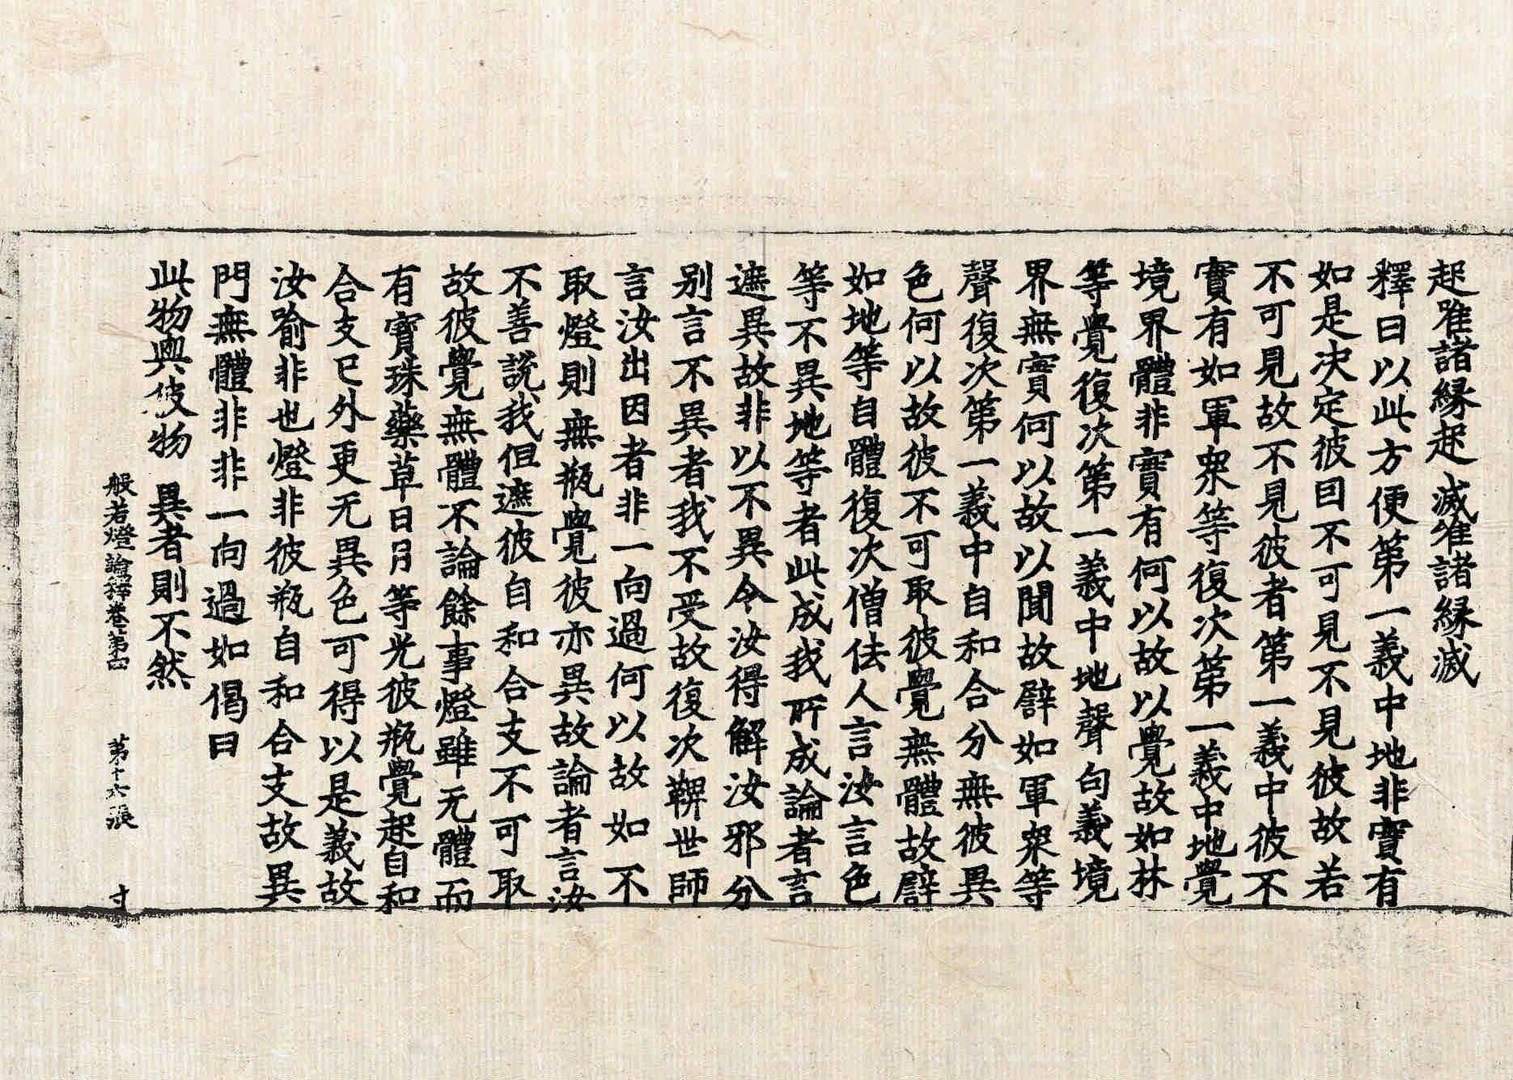 起唯諸緣起 滅唯諸緣滅
釋曰以此方便第一義中地非實有
如是决定彼因不可見不見彼故若
不可見故不見彼者第一義中彼不
實有如軍衆等復次第一義中地覺
境界體非實有何以故以覺故如林
等覺復次第一義中地聲句義境
界無實何以故以聞故譬如軍衆等
聲復次第一義中自和合分無彼異
色何以故彼不可取彼覺無體故譬
如地等自體復次僧佉人言汝言色
等不異地等者此成我所成論者言
遮異故非以不異令汝得解汝邪分
別言不異者我不受故復次鞞世師
言汝出因者非一向過何以故如不
取燈則無瓶覺彼亦異故論者言汝
不善說我但遮彼自和合支不可取
故彼覺無體不論餘事燈雖无體而
有寶珠藥草日月等光彼瓶覺起自和
合支已外更无異色可得以是義故
汝喻非也燈非彼瓶自和合支故異
門無體非非一向過如偈曰
此物與彼物 異者則不然
般若燈論釋卷第四 第十六張 寸